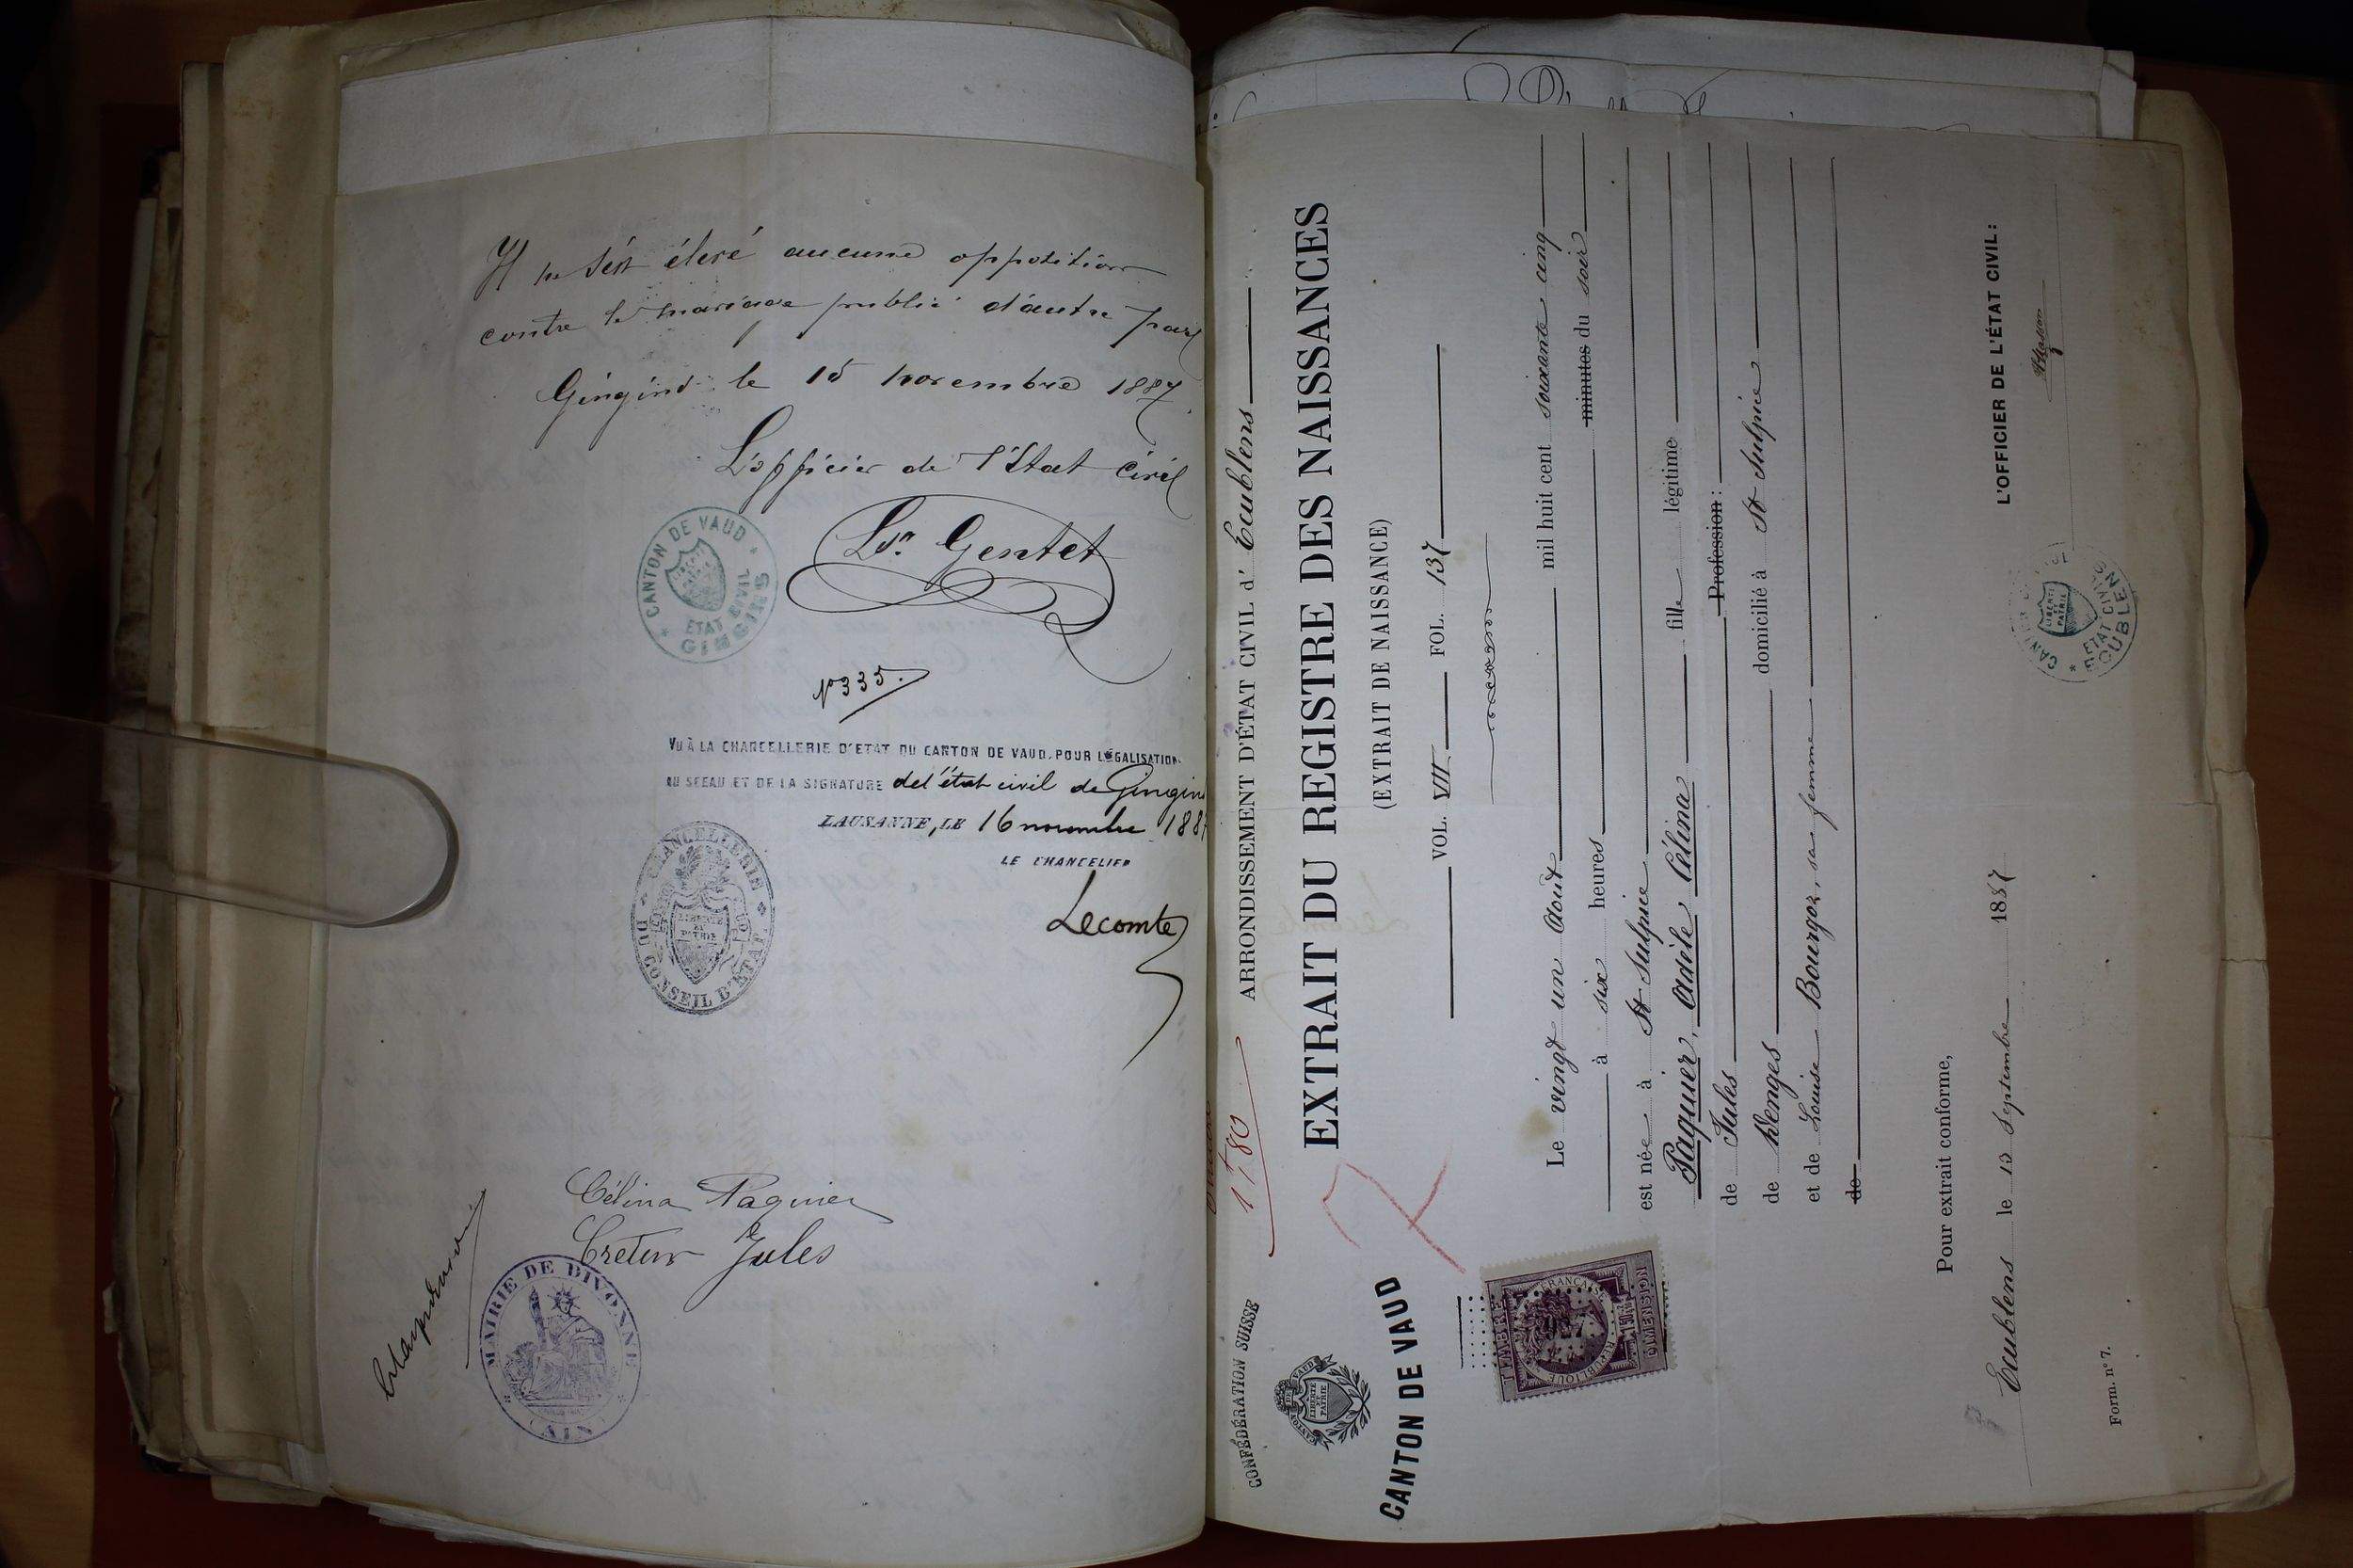 Il ne s'est élevé aucune opposition
contre le mariage publié d'autre part
Gingins le 15 novembre 1887.
L'officier de l'Etat civil
Ls. Gentet
* CANTON DE VAUD *
LIBERTÉ ET PATRIE
ETAT CIVIL
GINGINS
N° 335.
VU À LA CHANCELLERIE D'ETAT DU CANTON DE VAUD, POUR LÉGALISATION
DU SCEAU ET DE LA SIGNATURE de l'état civil de Gingins
LAUSANNE, LE 16 novembre 1887
LE CHANCELIER
Lecomte
* CHANCELLERIE *
DU CONSEIL D'ETAT
LIBERTÉ ET PATRIE
Célina Paquier
Cretin Jules
MAIRIE DE DIVONNE
* (AIN) *
CONFÉDÉRATION SUISSE
CANTON DE VAUD
LIBERTÉ ET PATRIE
CANTON DE VAUD
1f80
7
ARRONDISSEMENT D'ÉTAT CIVIL d' Ecublens
EXTRAIT DU REGISTRE DES NAISSANCES
(EXTRAIT DE NAISSANCE)
VOL. VII FOL. 137
TIMBRE
RÉPUBLIQUE FRANÇAISE
DIMENSION
Le vingt un Août mil huit cent soixante cinq
à six heures minutes du soir
est née à St Sulpice
Paquier, Adèle Célina fille légitime
de Jules Profession:
de Denges domicilié à St Sulpice
et de Louise Bourgoz, sa femme
de
Pour extrait conforme,
Ecublens le 13 Septembre 1887
L'OFFICIER DE L'ÉTAT CIVIL:
Masson
LIBERTÉ ET PATRIE
ETAT CIVIL
ECUBLENS
Form. n° 7.